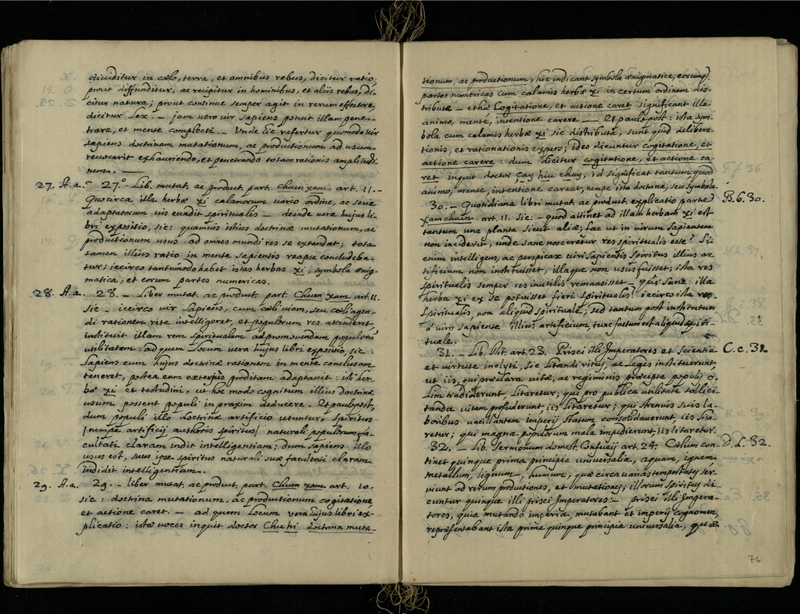 dividitur in cœlo, terra, et omnibus rebus, dicitur ratio,
prout diffunditur, ac recipitur in hominibus, et aliis rebus, di-
citur natura; prout continue semper agit in rerum effectore,
dicitur Lex. — jam vero vir sapiens potuit illam gene-
trare, et mente complecti. — Unde sic refertur quomodo vir
sapiens doctrinam mutationum, ac productionum ad usum
revocarit exhauriendo, et penetrando totam rationis amplitudi-
nem. —
27. A.a. 27.° Lib. mutat. ac product. part. Chuen xam. art. 11. —
illa herbæ xi calamorum vario ordine, ac serie
adaptatorum vis evadit spiritualis — deinde vera hujus li-
bri expositio, sic: quamvis istius doctrinæ mutationum, ac
productionum usus ad omnes mundi res se extendat; tota
tamen illius ratio in mente sapientis reapse concludeba-
tur; iccirco tantum modo habet istas herbas xi, symbola ænig-
matica, et eorum partes numericas.
28. A.a. 28. — Liber mutat. ac product. part. Chuen xam. art. 11.
sic — iccirco vir sapiens, cum cœli viam, seu cœli agen-
di rationem rite intelligeret, et populorum res attenderet,
instituit illam rem spiritualem ad promovendam populorum
utilitatem: ad quem locum vera hujus libri expositio, sic:
sapiens cum hujus doctrinæ rationem in mente conclusam
teneret, postea eam exterius quibusdam adaptavit: id her-
bæ xi et testudini, ut hoc modo cognitum illius doctrinæ
usum possent populi in praxim deducere. Et paulo post,
dum populi illo doctrinæ artificio utuntur, spiritus
/nempe artificij authoris spiritus/ naturali populorum fa-
cultati claram indit intelligentiam; dum sapiens illo
usus est, suus ipse spiritus naturali suæ facultati claram
indidit intelligentiam.
29. A.a. 29. — Liber mutat. ac product. part. Chuen xam. art. 10.
sic: doctrina mutationum, ac productionum cogitatione
et actione caret. — ad quem locum vera hujus libri ex-
plicatio: istæ voces inquit doctor Chu hi doctrina muta-
tionum, ac productionum, hic indicant symbola ænigmatica, eorumq.
partes numericas cum calamis herbæ xi in certum ordinem dis-
tributæ — et hæc Cogitatione, et actione carere significant illa
animo, mente, intentione carere — Et paulo post: ista sym-
bola cum calamis herbæ xi sic distributa, sunt quid delibera-
tionis, et rationationis expers; ideo dicuntur cogitatione, et
actione carere: dum dicitur cogitatione, et actione ca-
ret inquit doctor Cay hiu chay, id significat tantum quod
animo, mente, intentione careat, nempe ista doctrina, seu symbola.
30. — Quotidiana libri mutat. ac product. explicatio parte B.b.30.
xam chuen. art. 11. sic: — quod attinet ad illam herbam xi est
tantum una planta sicut aliæ; hæc ut in virum sapientem
non inciderit, unde sane nosceretur res spiritualis esse? Si
enim intelligens, ac perspicax viri sapientis spiritus illius ar-
tificium non instituisset, illaque non usus fuisset; ista res
spiritualis semper res inutilis remansisset — quis sane illa
herba xi ex se potuisset fieri spiritualis? iccirco ista res
spiritualis, non aliquid spirituale; sed tantum post institutum
a viro sapiente illius artificium, tunc factum est aliquid spiri-
tuale.
31. — Lib. art. 23. Prisci illi Imperatores et scientia C.c.31.
et virtute inclyti, sic litandi ritus, ac leges instituerunt,
ut iis, qui præclara vitæ, ac regiminis præcepta populis o-
lim tradiderunt, litaretur; qui pro publica utilitate sollici-
tanda vitam profuderunt, iis litaretur; qui strenuis suis la-
boribus vacillantem imperij statum consolidaverunt, iis lita-
retur; qui magna populorum mala impedierunt, iis litaretur.
32. — Lib. sermonum domest. Confucij art. 24. Cœlum con- D.d.32.
tinet quinque prima principia universalia, aquam, ignem
metallum, lignum, humum, quæ circa varias tempestates ser-
viunt ad rerum productiones, et mutationes; illorum spiritus di-
cuntur quinque illi prisci Imperatores: — prisci illi Impera-
tores, quia mutando imperia, mutabant et imperij cognomen,
repræsentabant ista prima quinque principia universalia, quæ
76